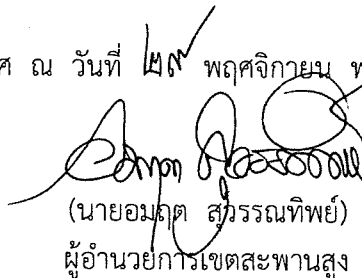 ศ ณ วันที่ ๒๙ พฤศจิกายน พ
(นายอมฤต สุวรรณทิพย์)
ผู้อำนวยการเขตสะพานสูง